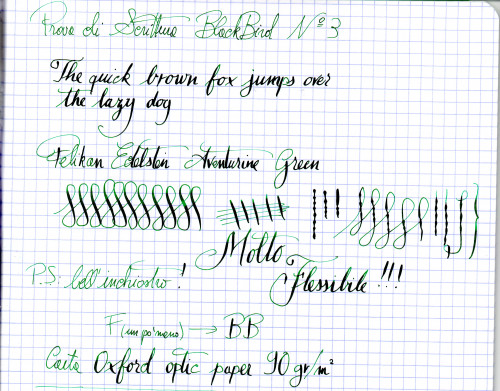 Prova di Scrittura BlackBird Nº3
The quick brown fox jumps over
the lazy dog
Pelikan Edelstein Aventurine Green
Molto
Flessibile!!!
P.S: bell'inchiostro!
F (un po' meno) → BB
Carta Oxford optic paper 90 gr/m²